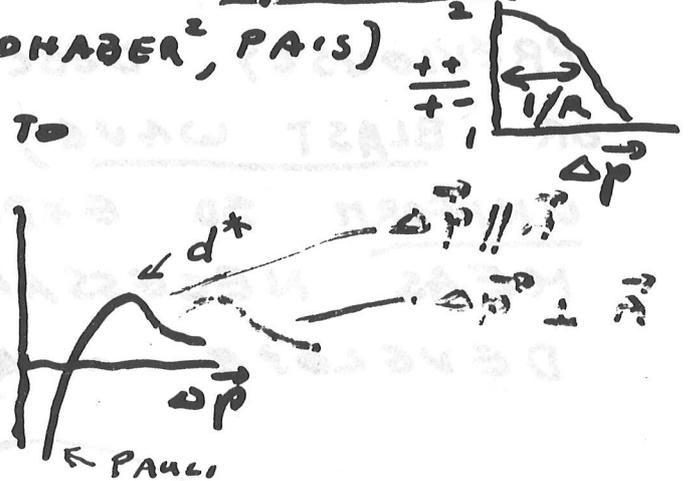 DHABER², PAIS)
++
+-
2
1/R
1
Δp⃗
TO
d*
Δp⃗ ∥
Δp⃗ ⊥
Δp⃗
← PAULI